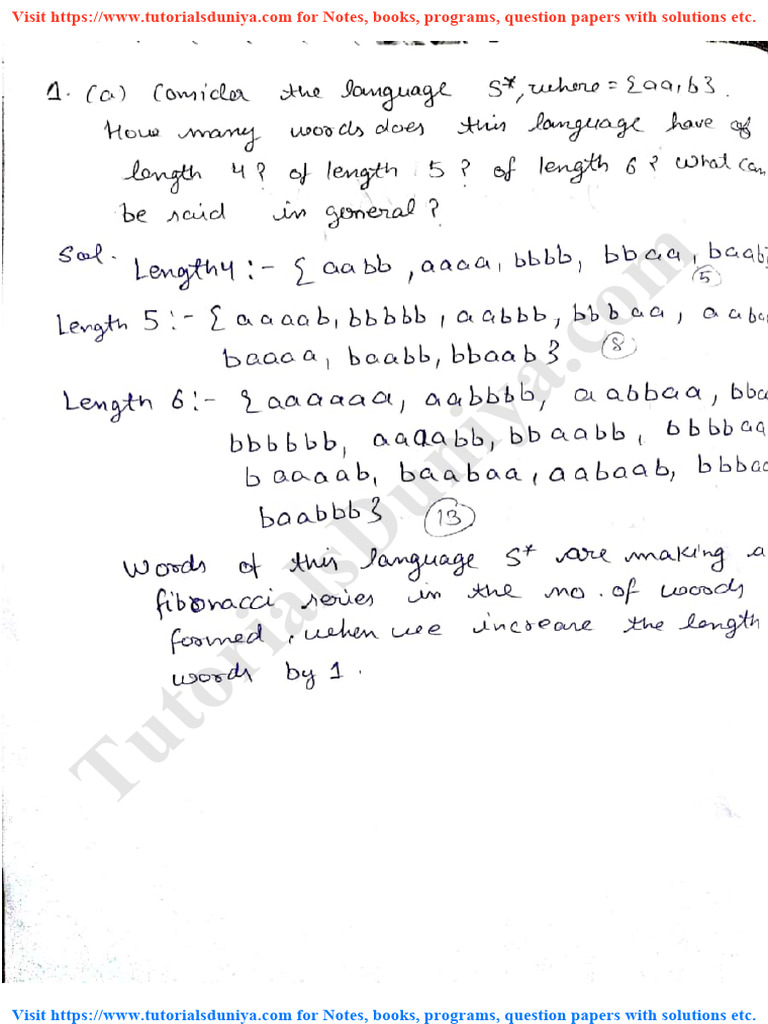 Visit https://www.tutorialsduniya.com for Notes, books, programs, question papers with solutions etc.
1. (a) Consider the language S*, where = {aa, b}.
How many words does this language have of
length 4? of length 5? of length 6? What can
be said in general?
Sol. Length 4 :- { aabb, aaaa, bbbb, bbaa, baab
5
Length 5 :- { aaaab, bbbbb, aabbb, bbbaa, aaba
baaaa, baabb, bbaab }
8
Length 6 :- { aaaaaa, aabbbb, aabbaa, bba
bbbbbb, aaaabb, bbaabb, bbbbaa
baaaab, baabaa, aabaab, bbbaa
baabbb }
13
Words of this language S* are making a
fibonacci series in the no. of words
formed, when we increase the length
words by 1.
TutorialsDuniya.com
Visit https://www.tutorialsduniya.com for Notes, books, programs, question papers with solutions etc.